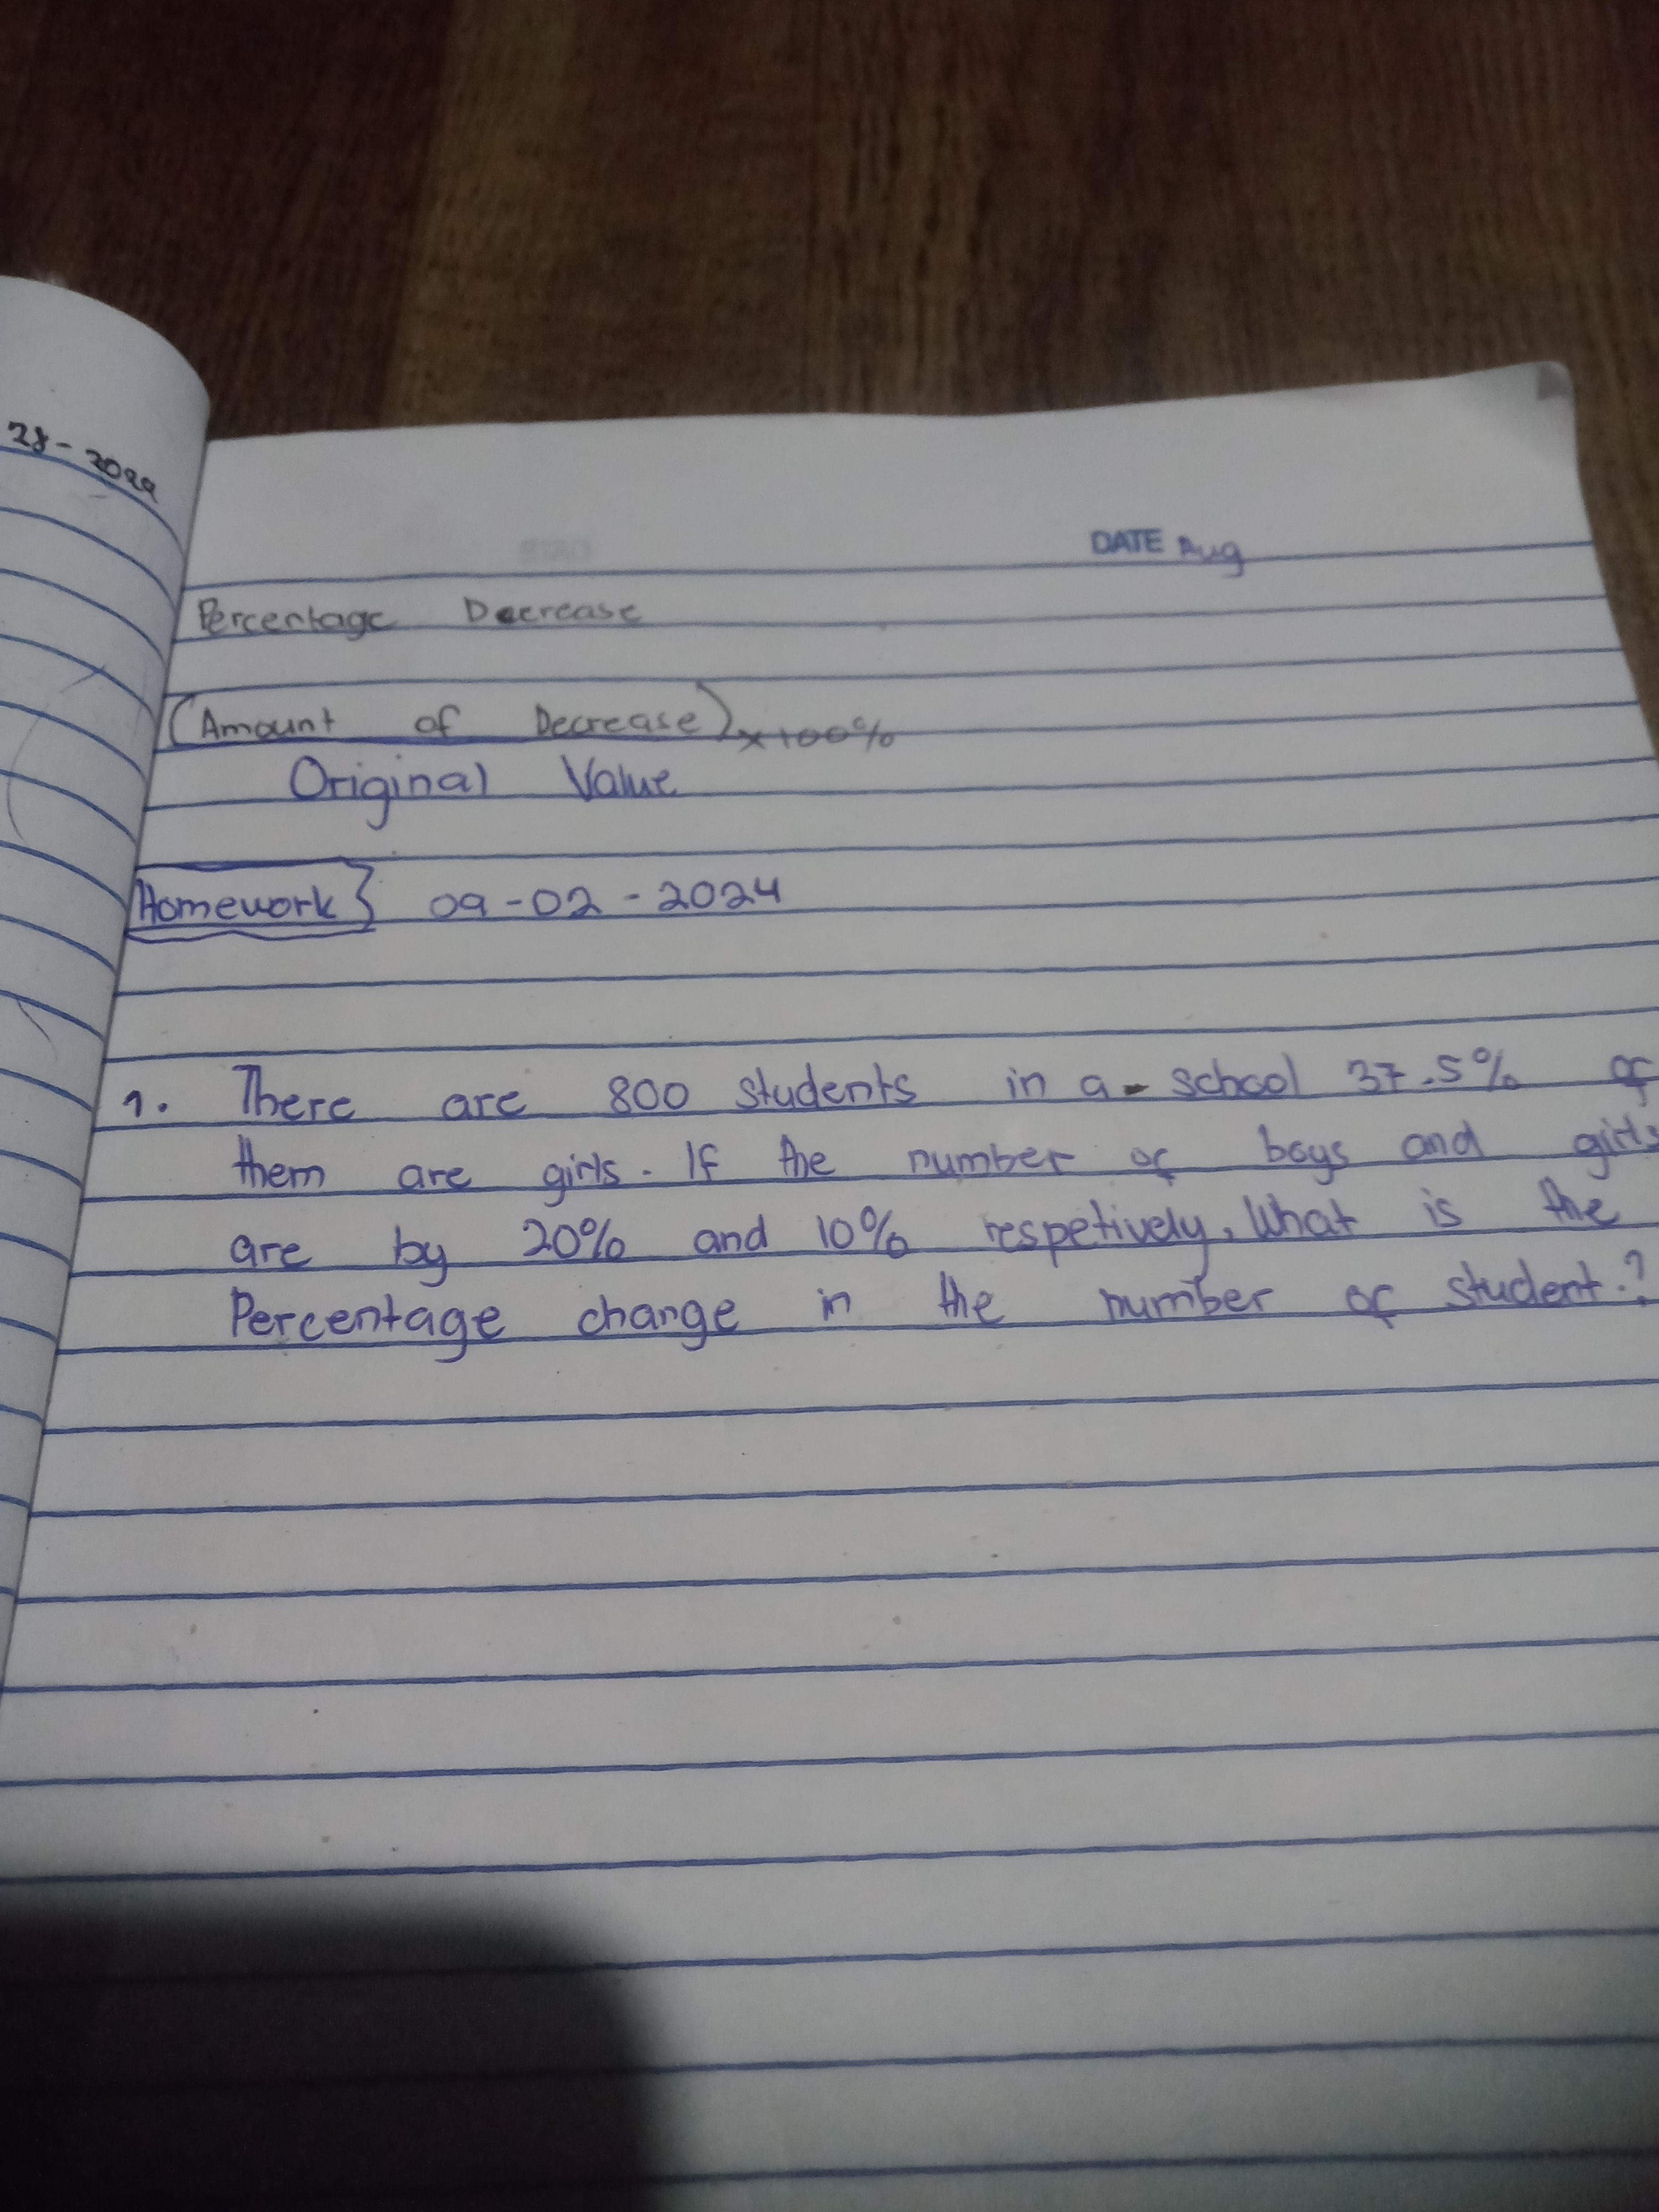 28-2024
DATE Aug
Percentage Decrease
(Amount of Decrease) x 100%
Original Value
Homework} 09-02-2024
1. There are 800 students in a school 37.5% of
them are girls. If the number of boys and girls
are by 20% and 10% respetively, What is the
Percentage change in the number of student.?